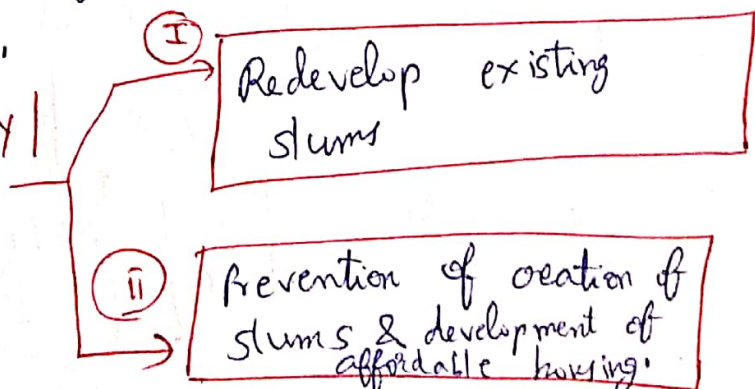 I
Redevelop existing
slums
II
Prevention of creation of
slums & development of
affordable housing.